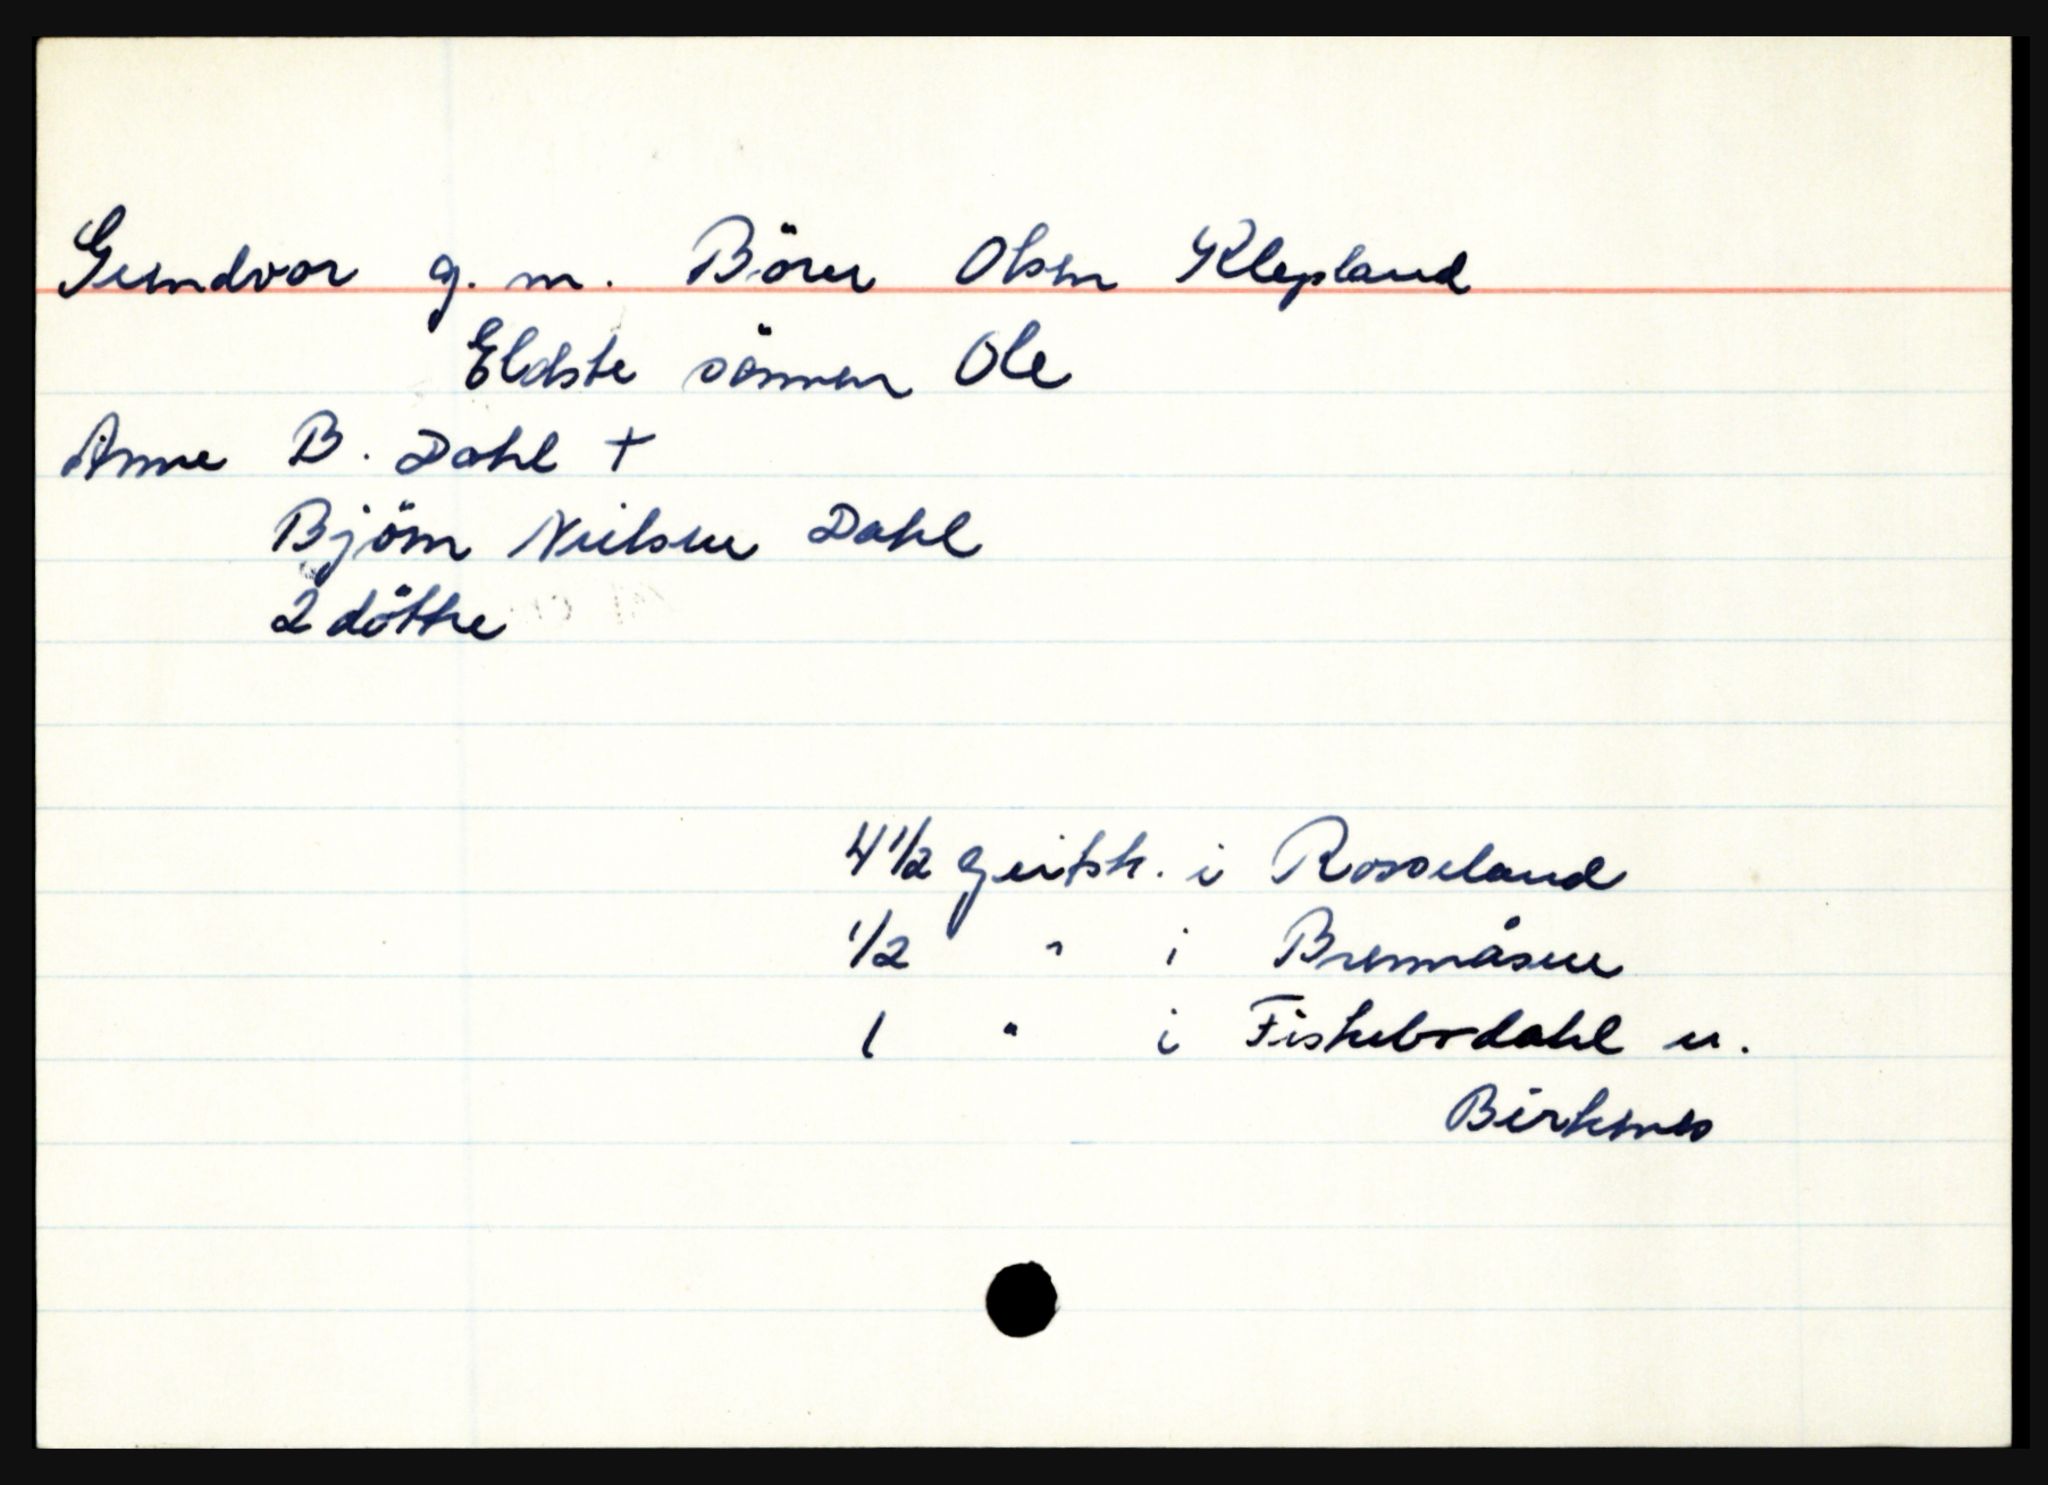 Gundvor g. m. Böru Olsen Klepland
Eldste sönnen Ole
Anne B. Dahl +
Björn Nielsen Dahl
2 döttre
4 1/2 geitsk. i Rosseland
1/2 " i Brennåsen
1 " i Fiskebrdahl u.
Birkenes